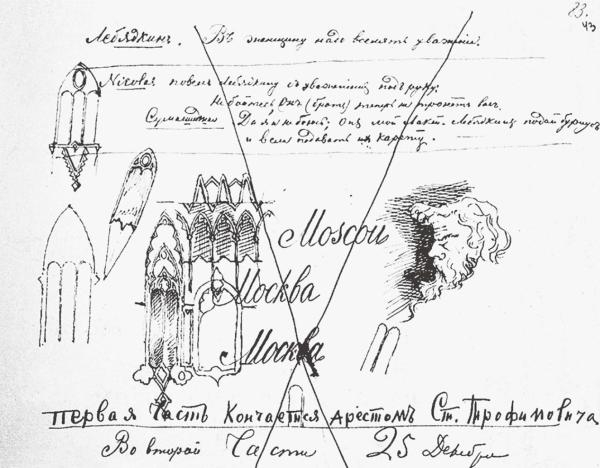 83.
43
Лебядкинъ. Въ женщину надо вселять уваженіе.
Nicolas повелъ Лебядкину съ уваженіемъ подъ руку:
Не бойтесь, онъ (братъ) теперь не тронетъ васъ.
Сумашедшая Да я не боюсь; Онъ мой лакей. Лебядкинъ подай бурнусъ
и вели подавать карету.
Moscou
Москва
Москва
Первая Часть Кончается Арестомъ Ст. Трофимовича
Во второй Части 25 Декабря